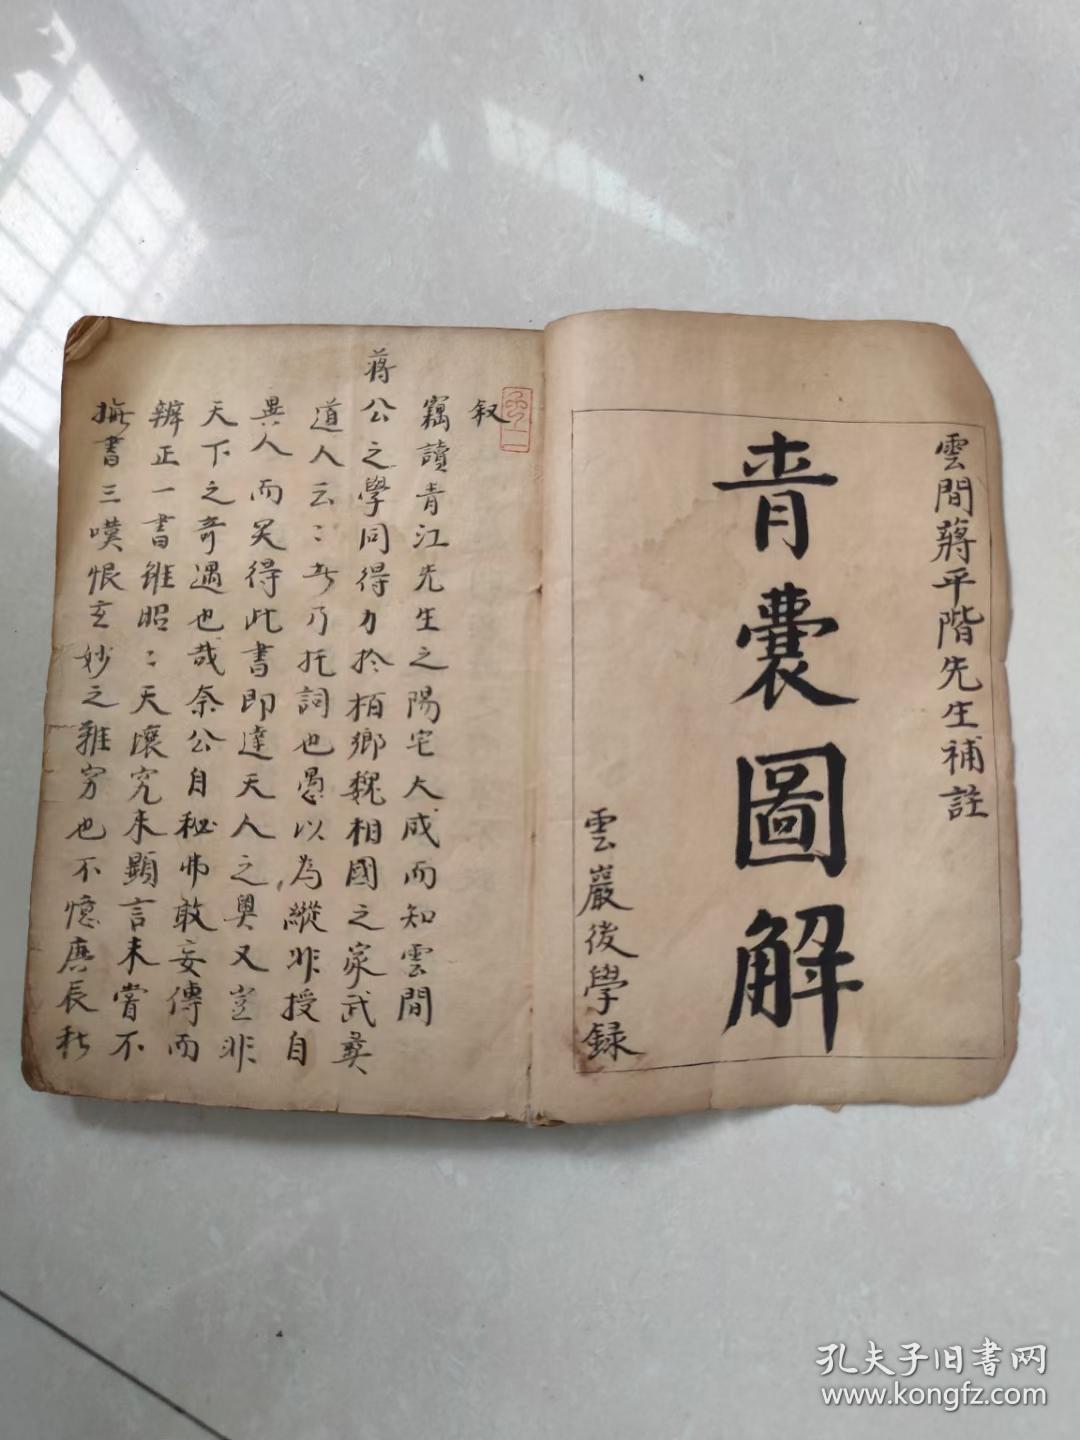 雲間蔣平階先生補註
青囊圖解
雲巖後學録
叙
竊讀青江先生之陽宅大成而知雲間
蔣公之學同得力於栢鄉魏相國之家武彛
道人云〻者乃托詞也愚以為縱非授自
異人而冥得此書即達天人之奧又豈非
天下之竒遇也哉奈公自秘弗敢妄傳而
辨正一書雖昭〻天壤究未顯言未嘗不
撫書三嘆恨玄妙之難穷也不憶唐辰秋
孔夫子旧书网
www.kongfz.com